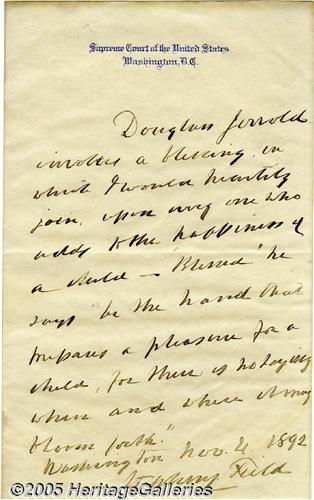 Supreme Court of the United States
Washington, D.C.
Douglass Jerrold
invokes a blessing, in
which I would heartily
join, upon every one who
adds to the happiness of
a child — "Blessed" he
says "be the hand that
prepares a pleasure for a
child, for there is no saying
when and where it may
bloom forth."
Washington Nov. 4, 1892
Stephen J. Field
©2005 HeritageGalleries